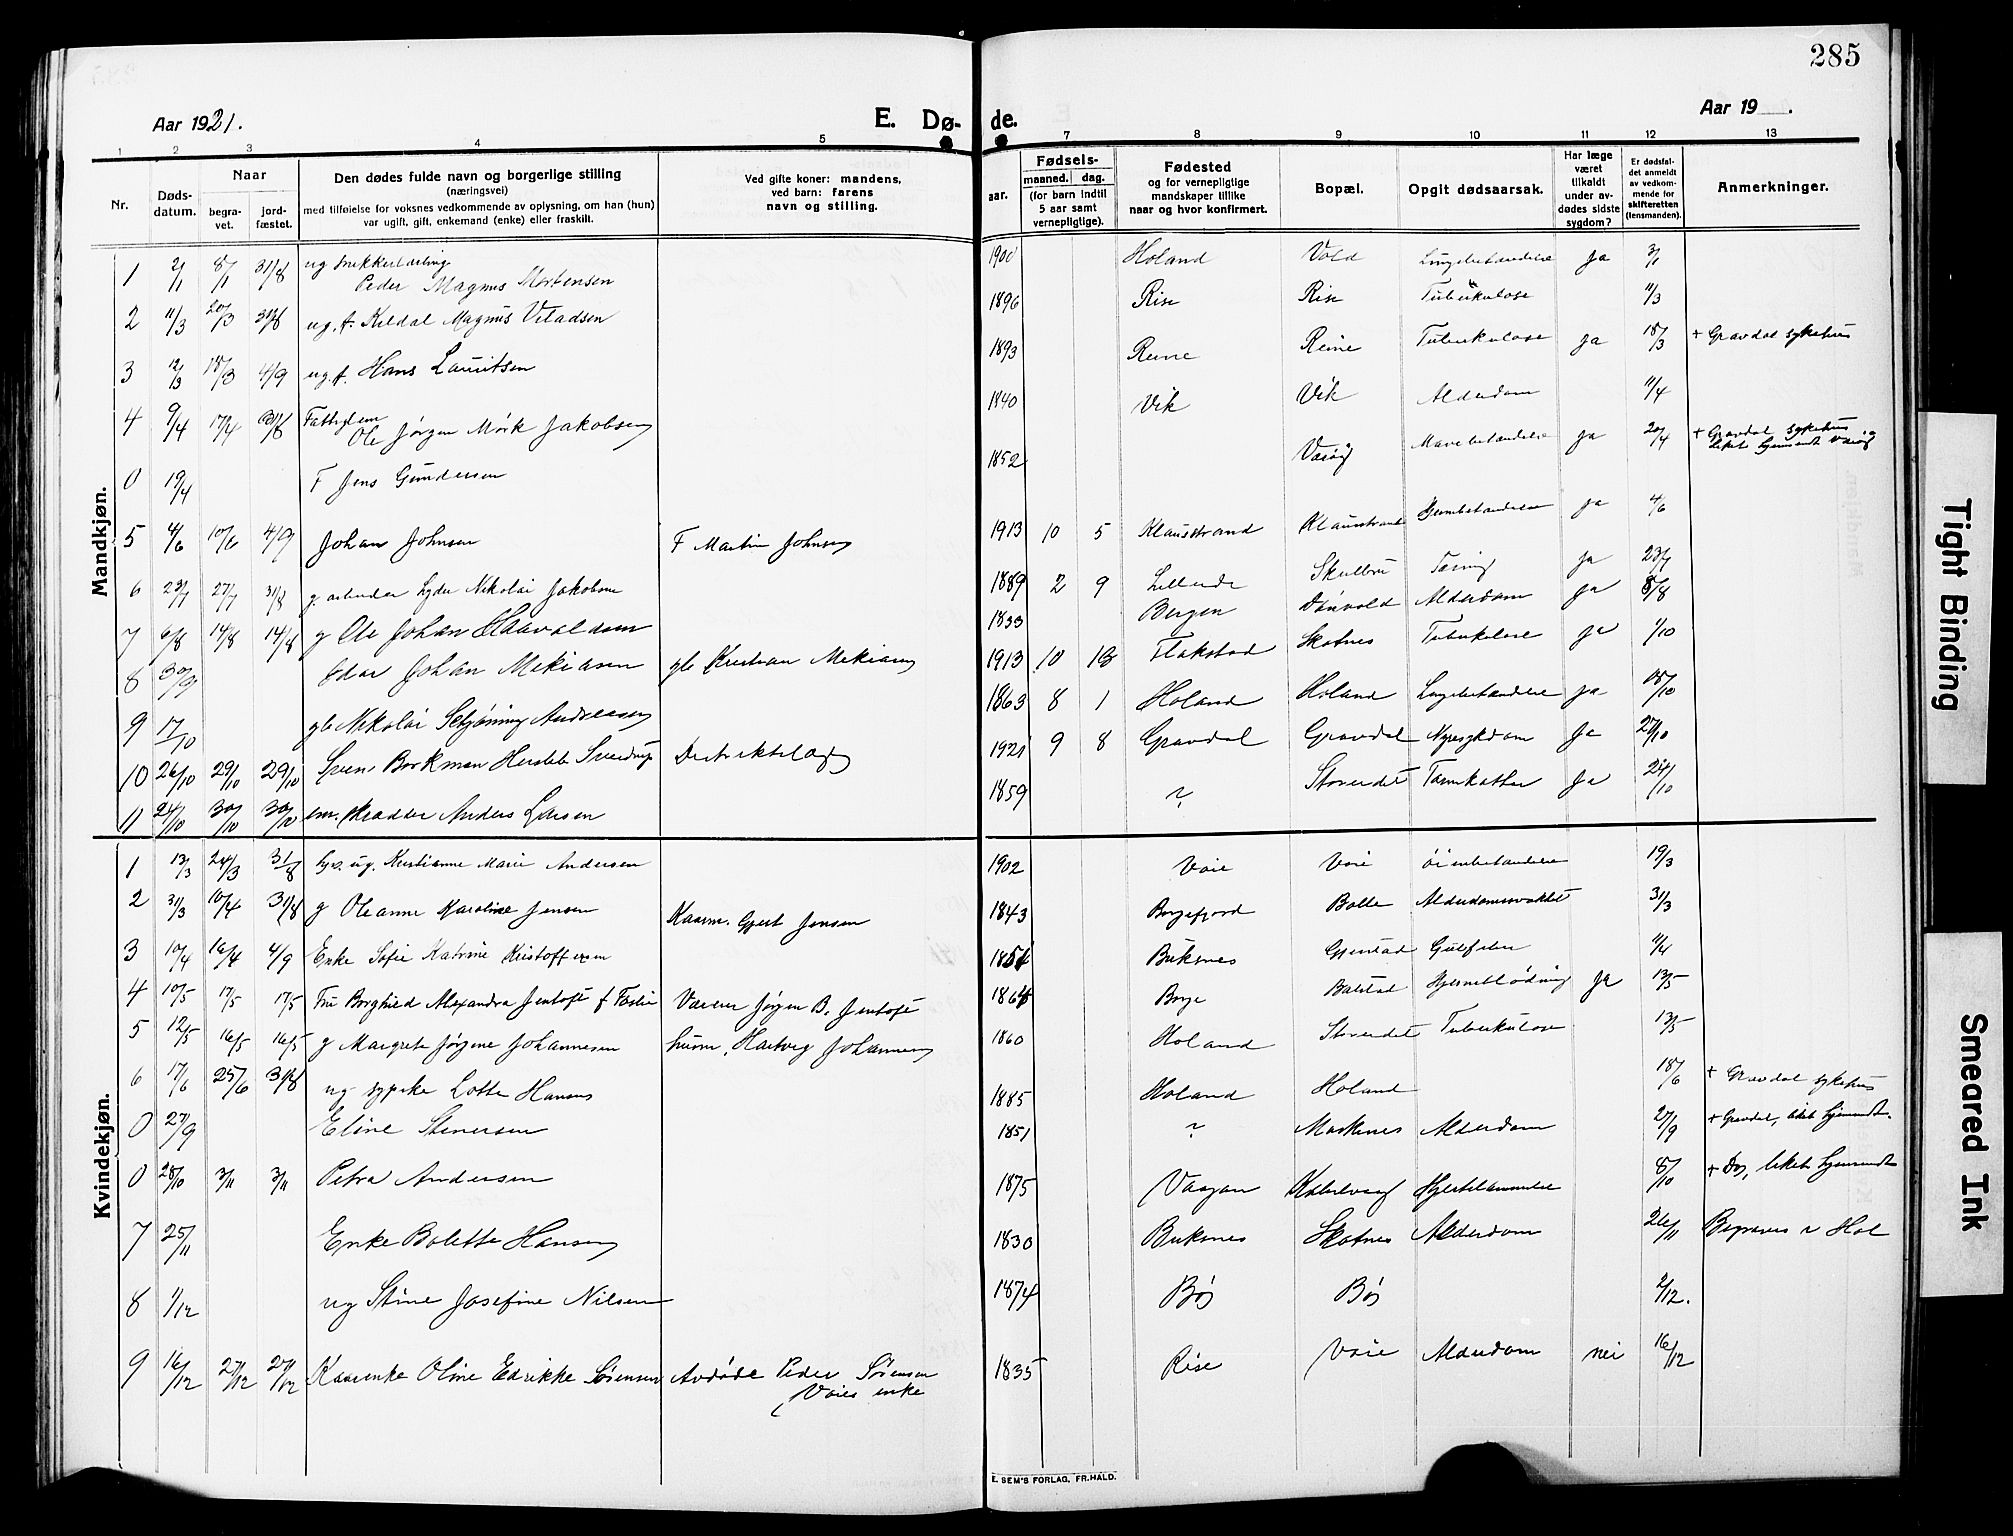 285
Aar 1921.
E. Dø-
de.
Aar 19 .
1 2 3 4 5 7 8 9 10 11 12 13
Nr.
Døds-
datum.
Naar
begra-
vet.
jord-
fæstet.
Den dødes fulde navn og borgerlige stilling
(næringsvei)
med tilføielse for voksnes vedkommende av oplysning, om han (hun)
var ugift, gift, enkemand (enke) eller fraskilt.
Ved gifte koner: mandens,
ved barn: farens
navn og stilling.
aar.
Fødsels-
maaned. dag.
(for barn indtil
5 aar samt
vernepligtige).
Fødested
og for vernepligtige
mandskaper tillike
naar og hvor konfirmert.
Bopæl.
Opgit dødsaarsak.
Har læge
været
tilkaldt
under av-
dødes sidste
sygdom?
Er dødsfal-
det anmeldt
av vedkom-
mende for
skifteretten
(lensmanden).
Anmerkninger.
Mandkjøn.
1 2/1 8/1 31/8 ug
Peder Magnus Mortensen 1900 Holand Vold ja 3/1
2 11/3 20/3 31/8 ug. f. Kildal Magnus 1896 Rise Rise Tuberkulose 11/3
3 12/3 18/3 4/9 ug. f. Hans Lauritsen 1893 Reine Reine Tuberkulose ja 18/3 + Gravdal sykehus
4 9/4 17/4 31/8 Fattiglem
Ole Jørgen Mørk Jakobsen 1840 Vik Vik Alderdom 11/4
0 19/4 F Jens Gundersen 1852 Værøy Mavebetændelse ja 20/4 + Gravdal sykehus
liket hjemsendt Værøy
5 4/6 10/6 4/9 Johan Johnsen F Martin Johnsen 1913 10 5 Klausstrand Klausstrand ja 4/6
6 23/7 27/7 31/8 g. arbeider Lyder Nikolai Jakobsen 1889 2 9 Skullbru Tæring ja 23/7
7 6/8 14/8 14/8 g Ole Johan 1833 Bergen Alderdom ja 8/8
8 30/9 Johan Mekiasen gb Kristian Mekiasen 1913 10 13 Flakstad Skotnes Tuberkulose ja 1/10
9 17/10 gb Nikolai Andreasen 1863 8 1 Holand Holand Lungebetændelse ja 18/10
10 26/10 29/10 29/10 Sven Borkman Hersleb Sverdrup Distriktslæge 1921 9 8 Gravdal Gravdal Nyresykdom ja 27/10
11 24/10 30/10 30/10 em. skrædder Anders Larsen 1859 ? Storeidet Tarmkatar ja 24/10
Kvindekjøn.
1 13/3 24/3 31/8 ug. Kristianne Marie Andersen 1902 Voie Voie 19/3
2 31/3 10/4 31/8 g Oleanne Karoline Jensen Kaarm. Gjert Jensen 1843 Borgefjord Bolle 31/3
3 10/4 16/4 4/9 Enke Sofie Katrine Kristoffersen 1854 Buksnes Gjerstad 11/4
4 10/5 17/5 17/5 Fru Borghild Alexandra Jentoft f Væreier Jørgen B. Jentoft 1864 Borge Balstad Hjerneblødning ja 13/5
5 12/5 16/5 16/5 g Margrete Jørgine Johannesen husm. Hartvig Johannesen 1860 Holand Storeidet Tuberkulose 13/5
6 17/6 25/6 31/8 ug sypike Lotte Hansen 1885 Holand Holand 18/6 + Gravdal sykehus
0 27/9 Eline Stenersen 1851 ? Moskenes Alderdom 27/9 + Gravdal, liket hjemsendt.
0 28/10 3/11 3/11 Petra Andersen 1875 Vaagan Kabelvaag 8/10 + Do, liket hjemsendt
7 25/11 Enke Bolette Hansen 1830 Buksnes Skotnes Alderdom 26/11 Begraves v Hol
8 1/12 ug Stine Josefine Nilsen 1874 Bø Bø 2/12.
9 16/12 27/12 27/12 Kaarenke Oline Edrikke Sørensen Avdøde Peder Sørensen
Voies enke 1835 Rise Voie Alderdom nei 16/12
E. SEM'S FORLAG, FR.HALD.
Tight Binding
Smeared Ink